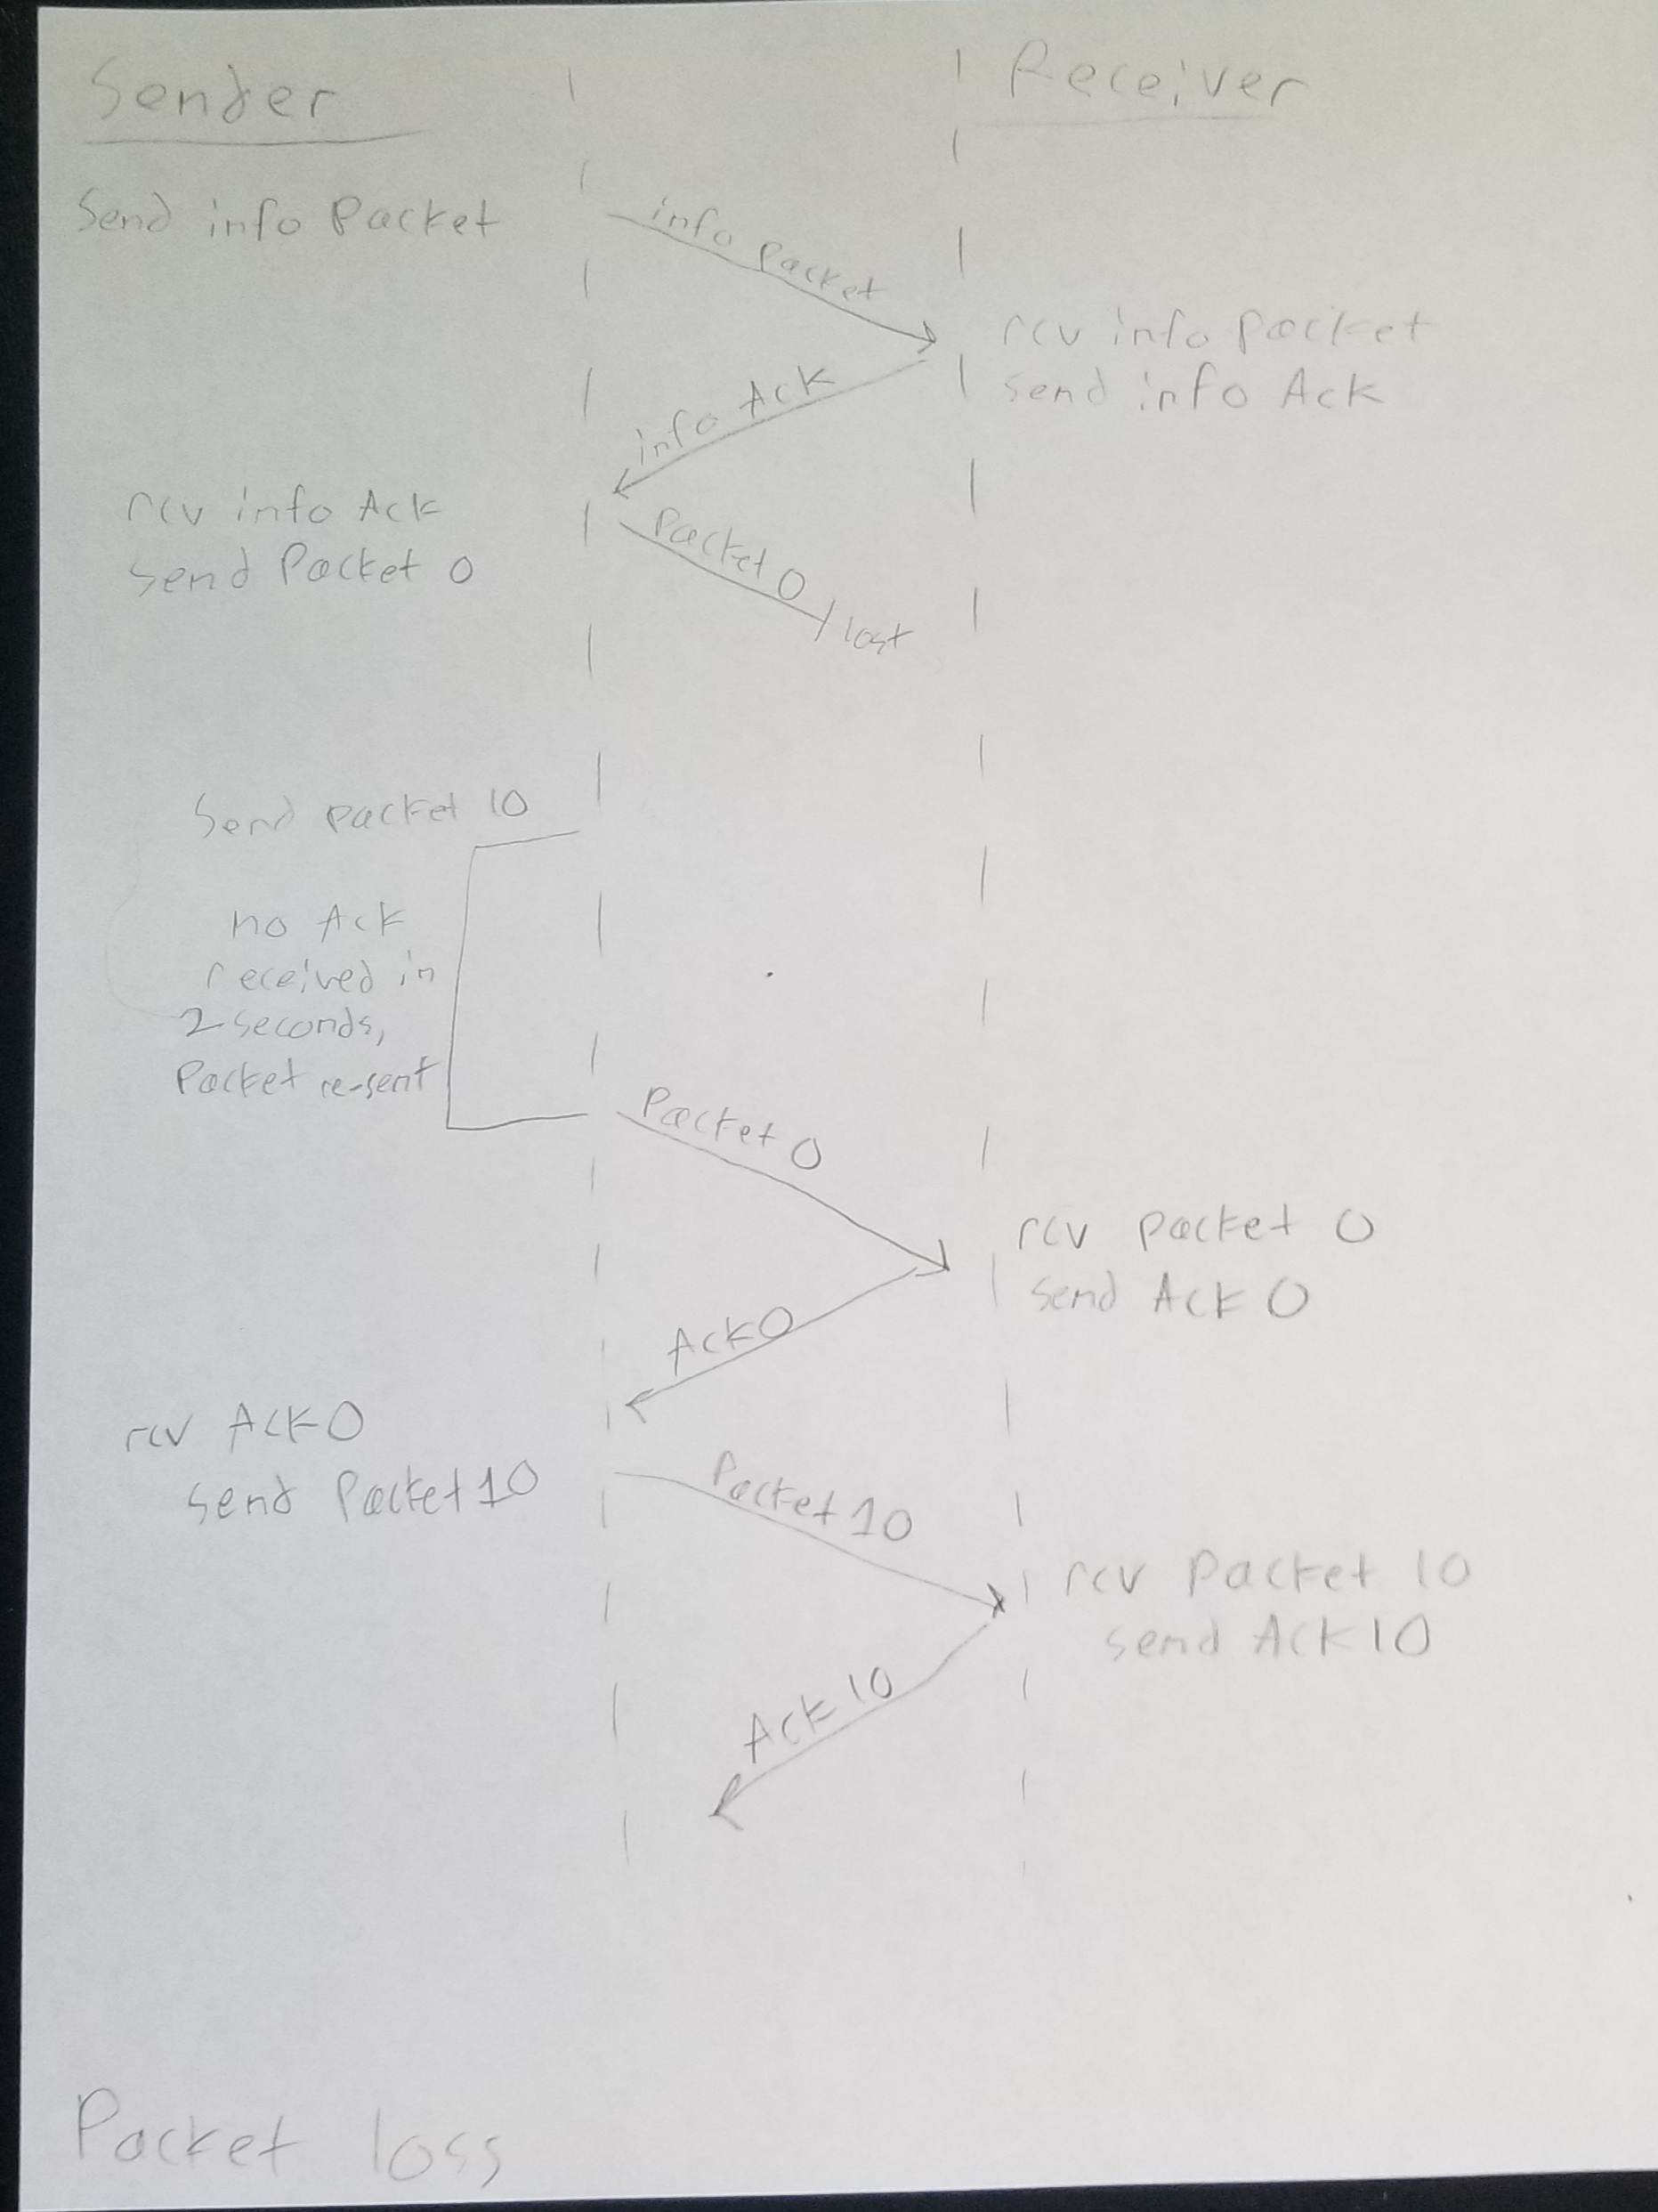 Sender
Receiver
Send info Packet
info Packet
rcv info packet
send info Ack
info Ack
rcv info Ack
send Packet 0
Packet 0
lost
Send packet 10
no Ack
received in
2 seconds,
Packet re-sent
Packet 0
rcv packet 0
send Ack 0
Ack 0
rcv Ack 0
send Packet 10
Packet 10
rcv Packet 10
send Ack 10
Ack 10
Packet loss